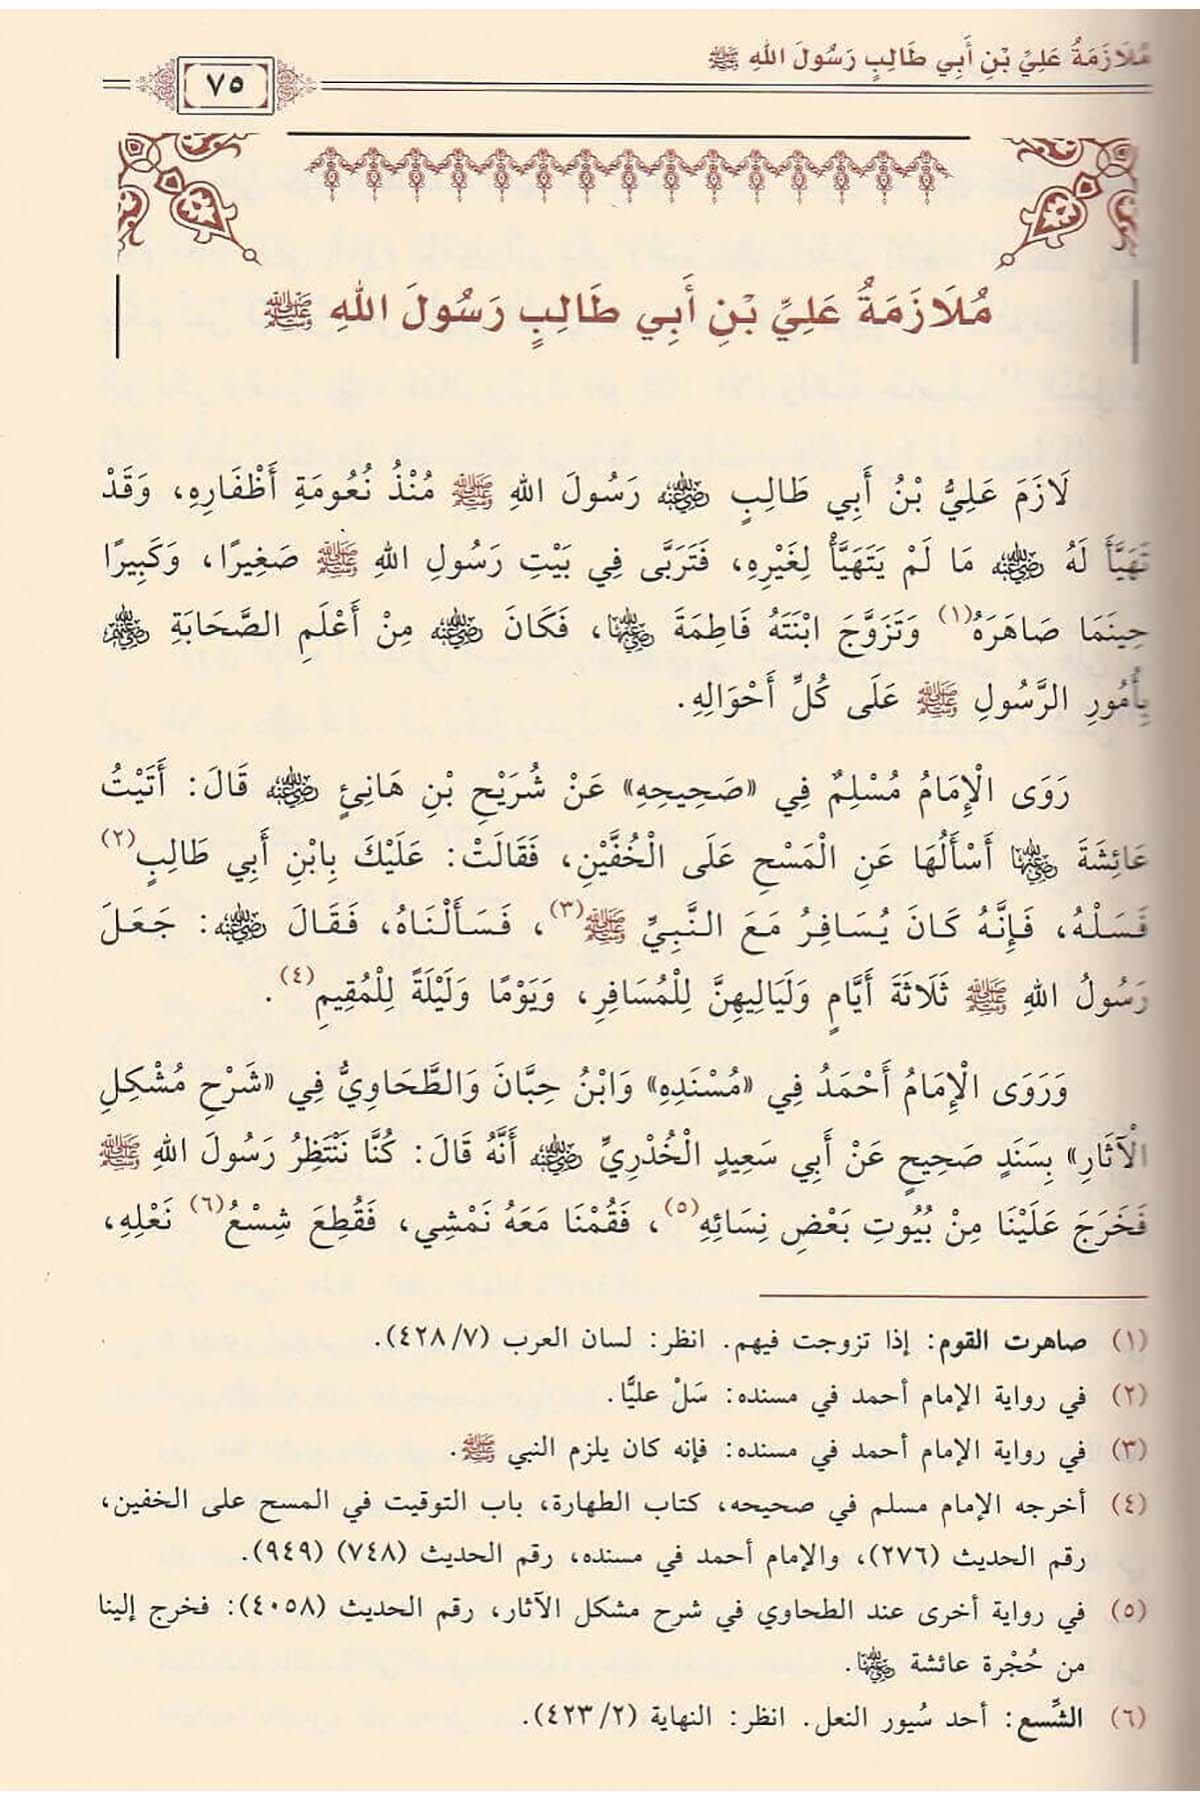 مُلَازَمَةُ عَلِيِّ بْنِ أَبِي طَالِبٍ رَسُولَ اللهِ ﷺ
٧٥
مُلَازَمَةُ عَلِيِّ بْنِ أَبِي طَالِبٍ رَسُولَ اللهِ ﷺ
لَازَمَ عَلِيُّ بْنُ أَبِي طَالِبٍ رضي الله عنه رَسُولَ اللهِ ﷺ مُنْذُ نُعُومَةِ أَظْفَارِهِ، وَقَدْ
تَهَيَّأَ لَهُ رضي الله عنه مَا لَمْ يَتَهَيَّأْ لِغَيْرِهِ، فَتَرَبَّى فِي بَيْتِ رَسُولِ اللهِ ﷺ صَغِيرًا، وَكَبِيرًا
حِينَمَا صَاهَرَهُ(١) وَتَزَوَّجَ ابْنَتَهُ فَاطِمَةَ رضي الله عنها، فَكَانَ رضي الله عنه مِنْ أَعْلَمِ الصَّحَابَةِ رضي الله عنهم
بِأُمُورِ الرَّسُولِ ﷺ عَلَى كُلِّ أَحْوَالِهِ.
رَوَى الْإِمَامُ مُسْلِمٌ فِي «صَحِيحِهِ» عَنْ شُرَيْحِ بْنِ هَانِئٍ رضي الله عنه قَالَ: أَتَيْتُ
عَائِشَةَ رضي الله عنها أَسْأَلُهَا عَنِ الْمَسْحِ عَلَى الْخُفَّيْنِ، فَقَالَتْ: عَلَيْكَ بِابْنِ أَبِي طَالِبٍ(٢)
فَسَلْهُ، فَإِنَّهُ كَانَ يُسَافِرُ مَعَ النَّبِيِّ ﷺ(٣)، فَسَأَلْنَاهُ، فَقَالَ رضي الله عنه: جَعَلَ
رَسُولُ اللهِ ﷺ ثَلَاثَةَ أَيَّامٍ وَلَيَالِيهِنَّ لِلْمُسَافِرِ، وَيَوْمًا وَلَيْلَةً لِلْمُقِيمِ(٤).
وَرَوَى الْإِمَامُ أَحْمَدُ فِي «مُسْنَدِهِ» وَابْنُ حِبَّانَ وَالطَّحَاوِيُّ فِي «شَرْحِ مُشْكِلِ
الْآثَارِ» بِسَنَدٍ صَحِيحٍ عَنْ أَبِي سَعِيدٍ الْخُدْرِيِّ رضي الله عنه أَنَّهُ قَالَ: كُنَّا نَنْتَظِرُ رَسُولَ اللهِ ﷺ
فَخَرَجَ عَلَيْنَا مِنْ بُيُوتِ بَعْضِ نِسَائِهِ(٥)، فَقُمْنَا مَعَهُ نَمْشِي، فَقُطِعَ شِسْعُ(٦) نَعْلِهِ،
(١) صاهرت القوم: إذا تزوجت فيهم. انظر: لسان العرب (٤٢٨/٧).
(٢) في رواية الإمام أحمد في مسنده: سَلْ عليًّا.
(٣) في رواية الإمام أحمد في مسنده: فإنه كان يلزم النبي ﷺ.
(٤) أخرجه الإمام مسلم في صحيحه، كتاب الطهارة، باب التوقيت في المسح على الخفين،
رقم الحديث (٢٧٦)، والإمام أحمد في مسنده، رقم الحديث (٧٤٨) (٩٤٩).
(٥) في رواية أخرى عند الطحاوي في شرح مشكل الآثار، رقم الحديث (٤٠٥٨): فخرج إلينا
من حُجْرة عائشة رضي الله عنها.
(٦) الشِّسع: أحد سُيور النعل. انظر: النهاية (٤٢٣/٢).